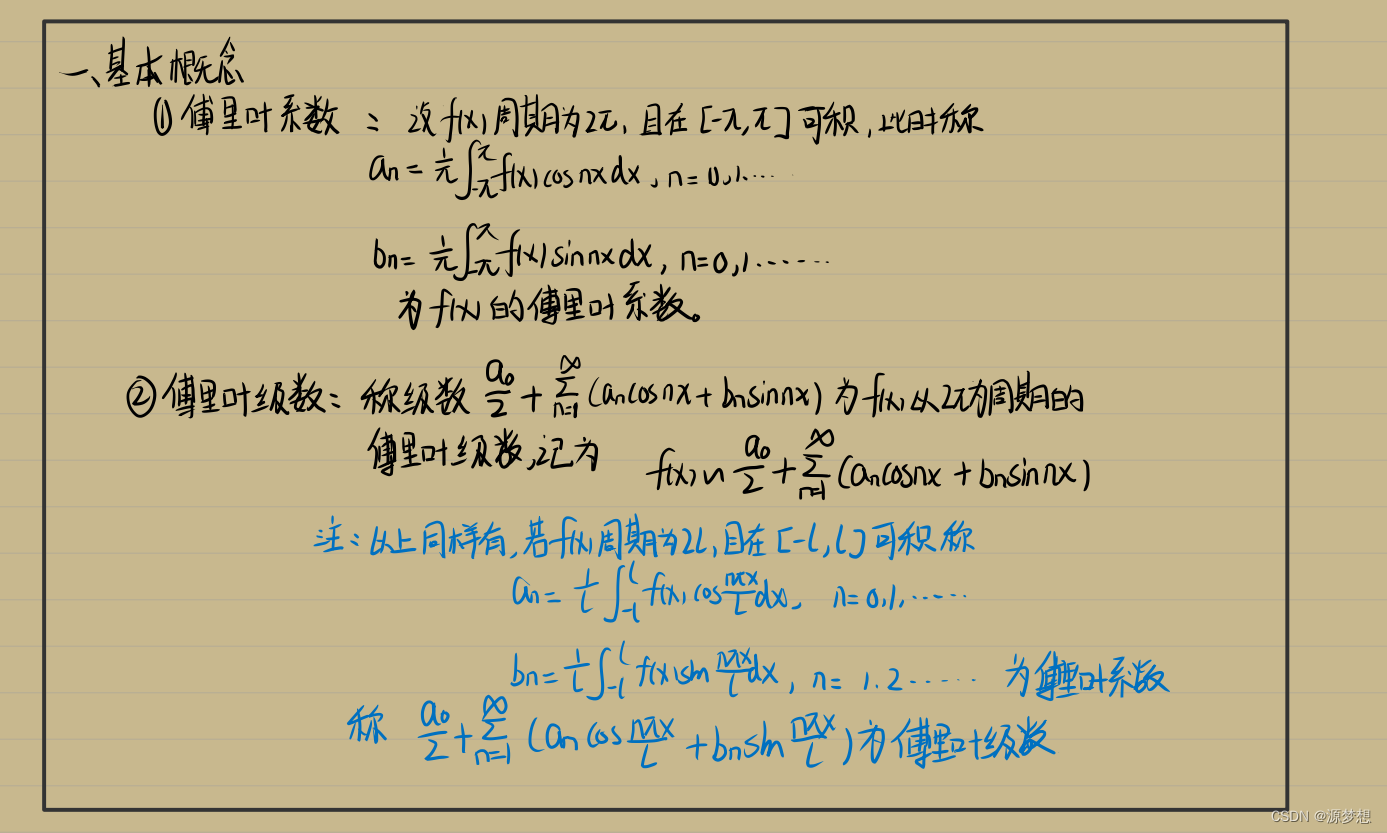 一、基本概念
① 傅里叶系数：设 f(x) 周期为2π，且在 [-π,π] 可积，此时称
an = 1/π ∫_{-π}^{π} f(x) cos nx dx, n = 0,1.....
bn = 1/π ∫_{-π}^{π} f(x) sin nx dx, n=0,1.......
为 f(x) 的傅里叶系数。
② 傅里叶级数：称级数 a0/2 + ∑_{n=1}^{∞} (an cos nx + bn sin nx) 为 f(x) 以2π为周期的
傅里叶级数,记为 f(x) ~ a0/2 + ∑_{n=1}^{∞} (an cos nx + bn sin nx)
注：以上同样有,若 f(x) 周期为2l,且在 [-l, l] 可积 称
an = 1/l ∫_{-l}^{l} f(x) cos nπx/l dx, n=0,1,......
bn = 1/l ∫_{-l}^{l} f(x) sin nπx/l dx, n= 1.2...... 为傅里叶系数
称 a0/2 + ∑_{n=1}^{∞} (an cos nπx/l + bn sin nπx/l) 为傅里叶级数
CSDN @源梦想